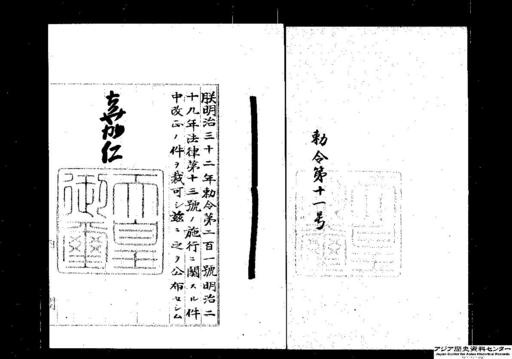 勅令第十一号
朕明治三十二年勅令第二百一號明治二
十九年法律第十三號ノ施行ニ關スル件
中改正ノ件ヲ裁可シ茲ニ之ヲ公布セシム
嘉仁
天皇
御璽
アジア歴史資料センター
Japan Center for Asian Historical Records